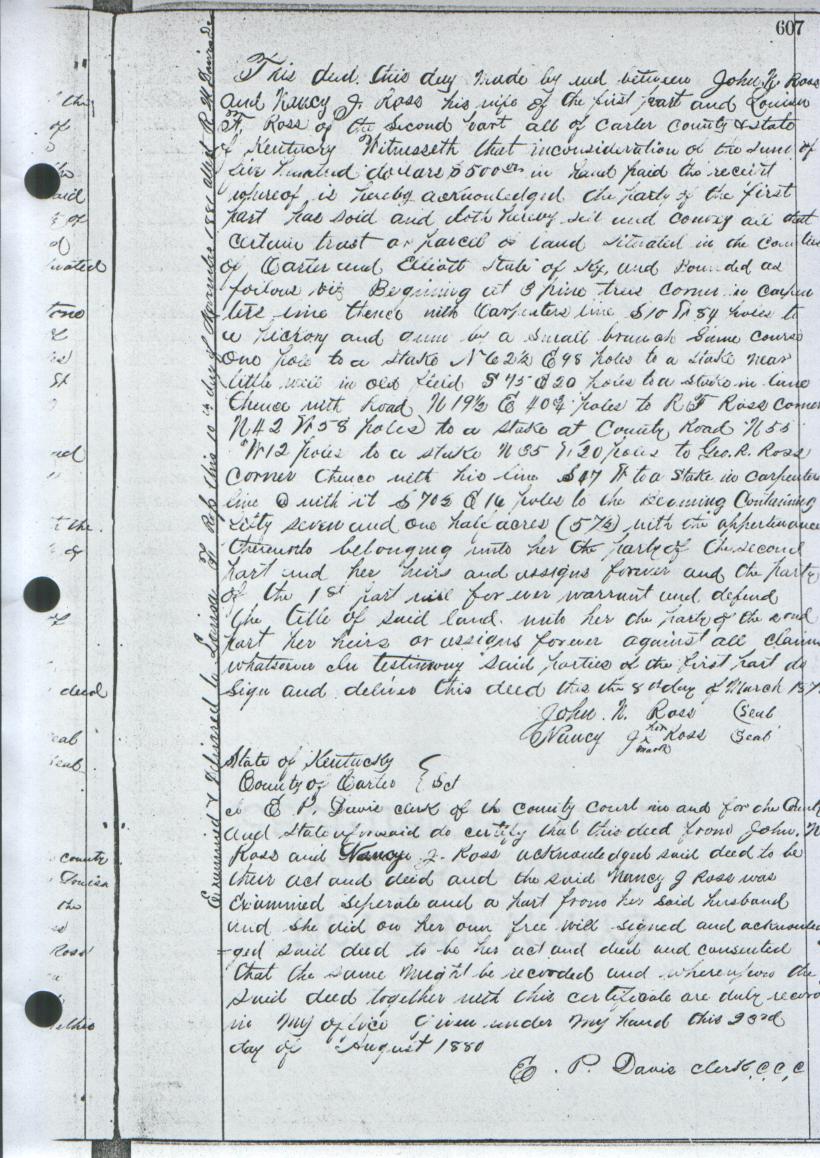 607
This deed this day made by and between John N Ross
and Nancy J. Ross his wife of the first part and Louisa
F. Ross of the Second part all of Carter County & State
of Kentucky Witnesseth that inconsideration of the Sum of
five hundred dollars $500.00 in hand paid the receipt
whereof is hereby acknowledged the party of the first
part has sold and doth hereby sell and convey all that
certain trast or parcel of land situated in the counties
of Carter and Elliott State of Ky, and Bounded as
follows viz Begining at 3 pine trees corner in carpen
ters line thence with Carpenters line S10 W 84 poles to
a hickory and gum by a small branch Same course
One pole to a stake N 62½ E 98 poles to a stake near
little well in old field S 75 E 20 poles to a stake in lane
Thence with Road N 19½ E 40¾ poles to R F Ross corner
N 42 W 58 poles to a stake at County Road N 55
W 12 poles to a stake N 35 W 20 poles to Geo. R. Ross
corner thence with his line S 47 W to a Stake in carpenters
line & with it S 70½ E 16 poles to the Begining Containing
seven and one half acres (57½) with the appertinance
thereunto belonging unto her the party of the second
part and her heirs and assigns forever and the party
of the 1st part will for ever warrant and defend
the title of said land unto her the party of the
part her heirs or assigns forever against all claims
whatsoever In testimony said parties of the first part do
sign and deliver this deed this the 8th day of March 187
John N. Ross (Seal
Nancy J her x mark Ross (Seal
State of Kentucky
County of Carter } Sct
I E P. Davis clerk of the county court in and for the County
and state aforesaid do certify that this deed from John. N
Ross and Nancy J. Ross acknowledged said deed to be
their act and deed and the said Nancy J Ross was
Examined seperate and a part from her said husband
and she did on her own free will signed and acknowled
ged said deed to be her act and deed and consented
that the same might be recorded and whereupon the
said deed together with this certificate are duly record
in my office Given under my hand this 23rd
day of August 1880
E. P. Davis clerk C, C, C
Examined & Delivered to Louisa F Ross this 10th day of November 1881 attest R M
the
of
said
of
uated
tono
St
t the
deed
eal
Seal
county
Louisa
the
Ross